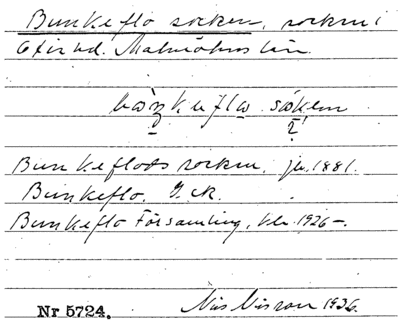 Bunkeflo socken, socken i
Oxie hd. Malmöhus län.
socken
Bunkeflods socken, je. 1881.
Bunkeflo. G. ck.
Bunkeflo Församling, 1926-.
Nr 5724. Nils Nilsson 1936.